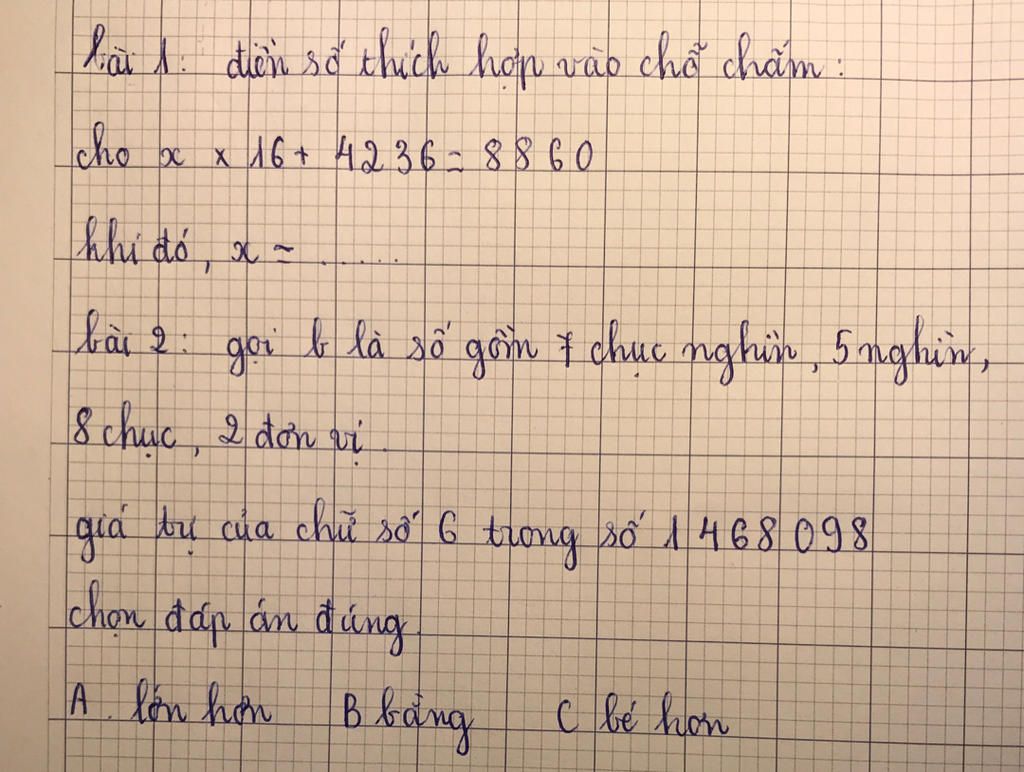 bài 1: điền số thích hợp vào chỗ chấm:
cho x x 16 + 4236 = 8860
khi đó, x = ......
bài 2: gọi b là số gồm 7 chục nghìn, 5 nghìn,
8 chục, 2 đơn vị.
giá trị của chữ số 6 trong số 1 468 098
chọn đáp án đúng.
A. lớn hơn B bằng C bé hơn